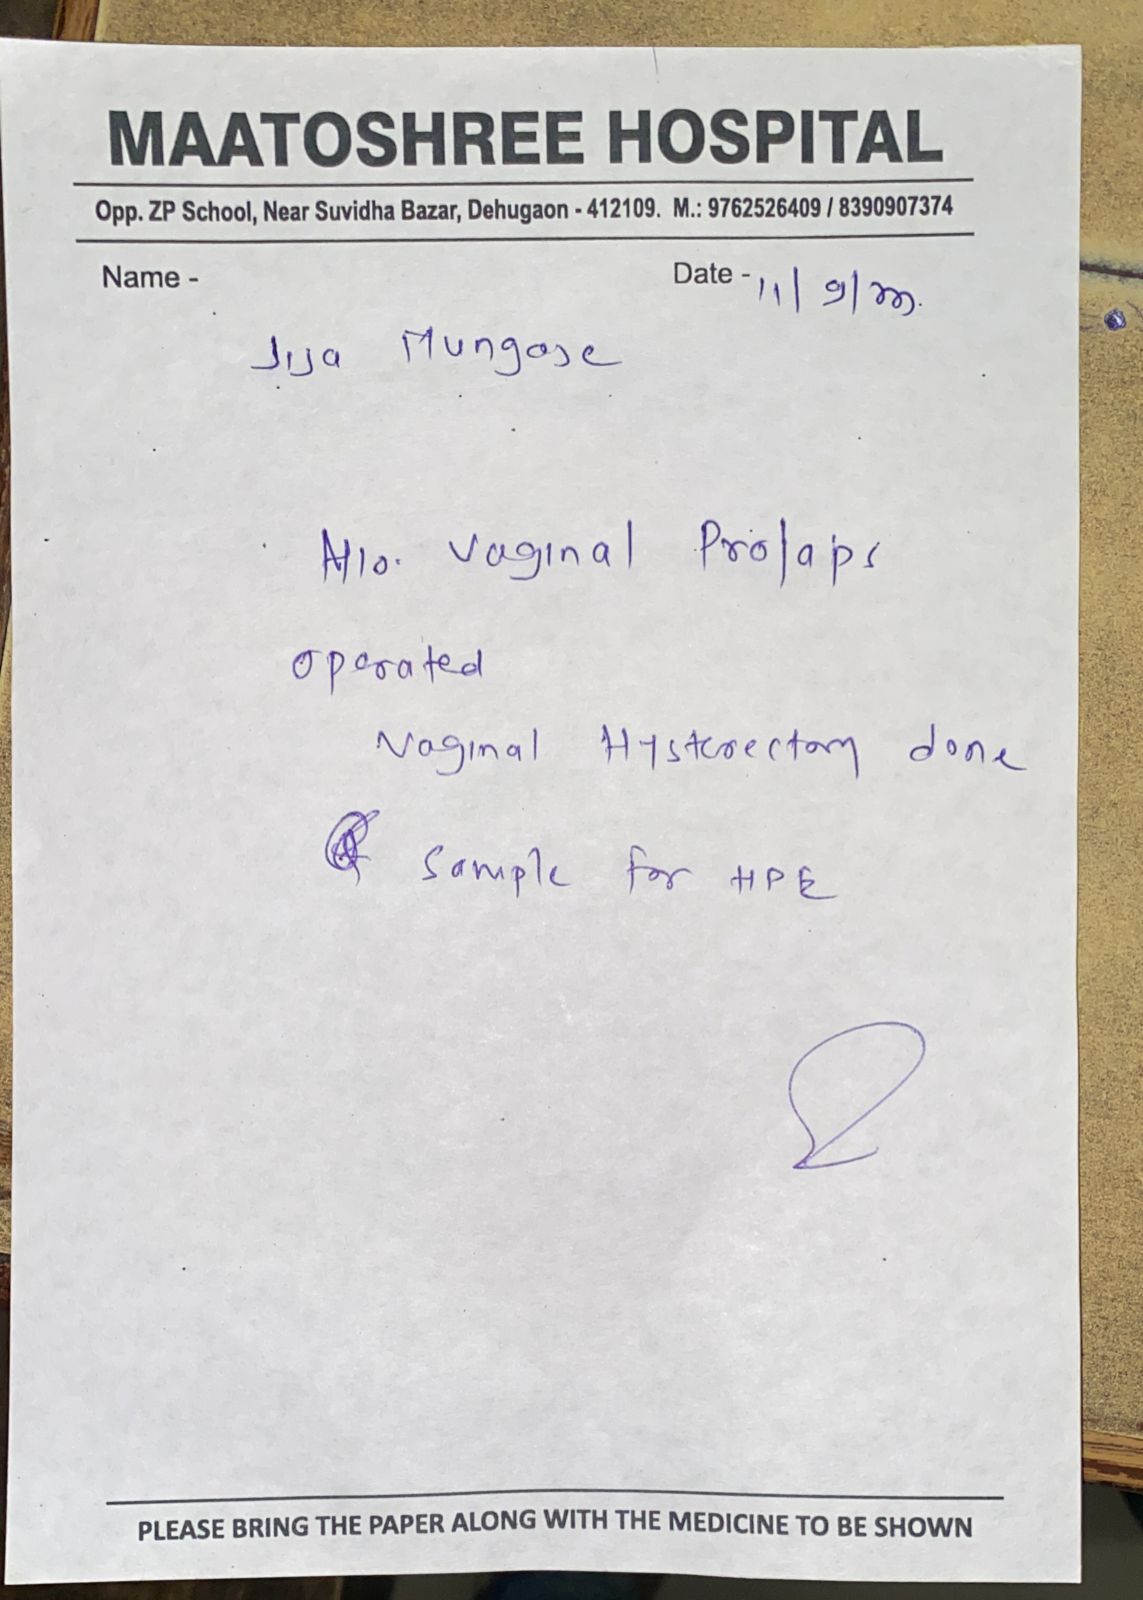 MAATOSHREE HOSPITAL
Opp. ZP School, Near Suvidha Bazar, Dehugaon - 412109. M.: 9762526409 / 8390907374
Name -
Date - 11/9/
Jija Mungase
Vaginal Prolaps
operated
Vaginal Hysterectomy done
Sample for HPE
PLEASE BRING THE PAPER ALONG WITH THE MEDICINE TO BE SHOWN